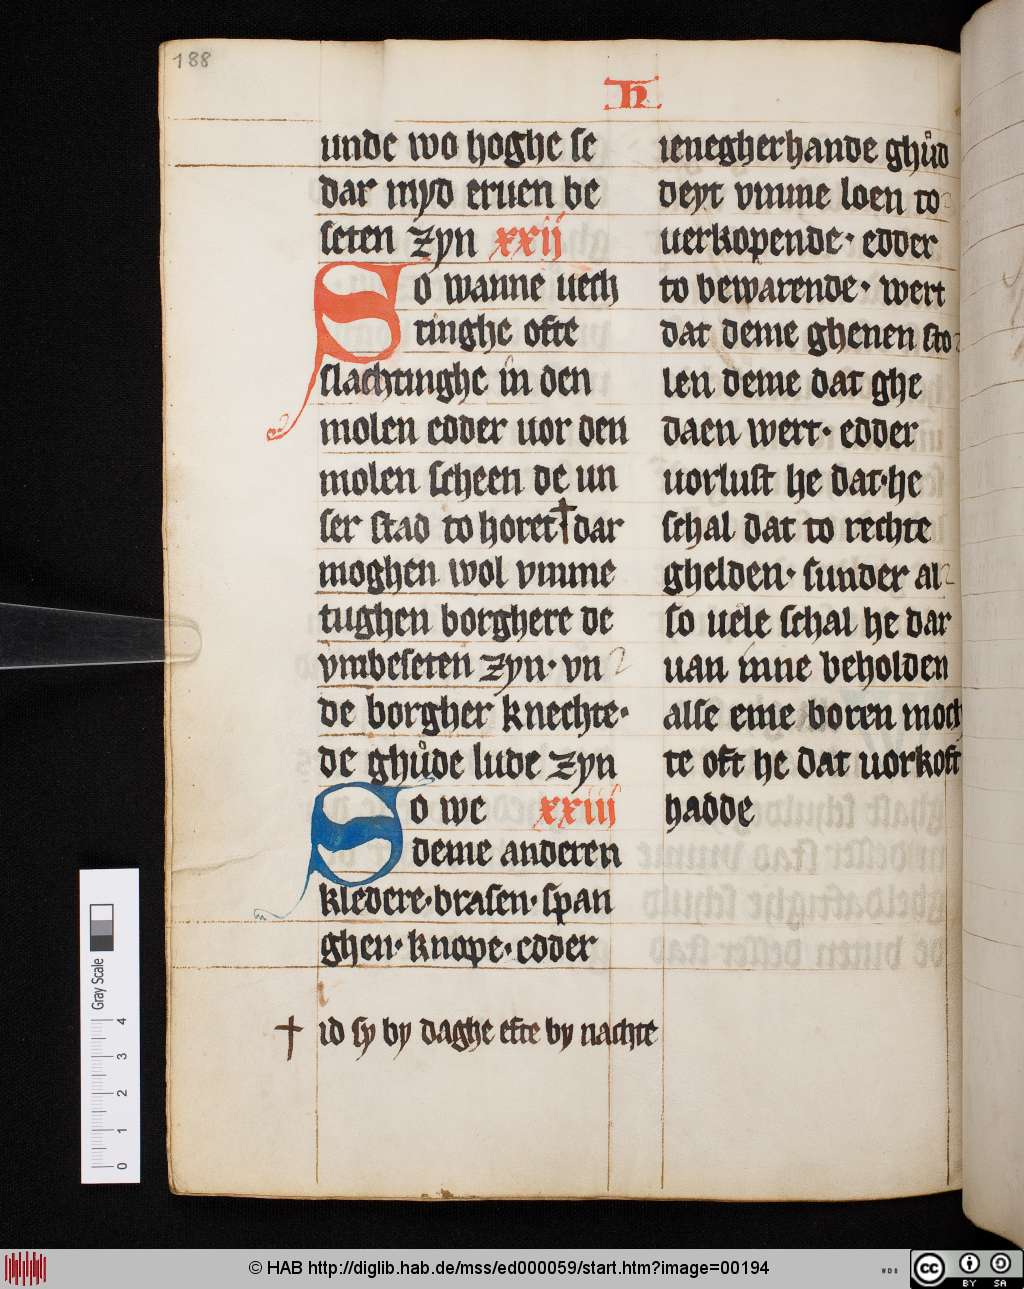 188
H
unde wo hoghe se
dar myd eruen be
seten zyn xxij
So wanne uech
tinghe ofte
slachtinghe in den
molen edder uor den
molen scheen de un
ser stad to horet † dar
moghen wol vmme
tughen borghere de
vmbeseten zyn · vn
de borgher knechte ·
de ghůde lude zyn
So we xxiij
deme anderen
kledere · brasen · span
ghen · knope · edder
† id sy by daghe efte by nachte
ienegherhande ghůd
deyt vmme loen to
uerkopende · edder
to bewarende · wert
dat deme ghenen sto
len deme dat ghe
daen wert · edder
uorlust he dat · he
schal dat to rechte
ghelden · sunder al
so uele schal he dar
uan inne beholden
alse eme boren moch
te oft he dat uorkoft
hadde
Gray Scale
0 1 2 3 4
© HAB http://diglib.hab.de/mss/ed000059/start.htm?image=00194
WDB
cc BY SA